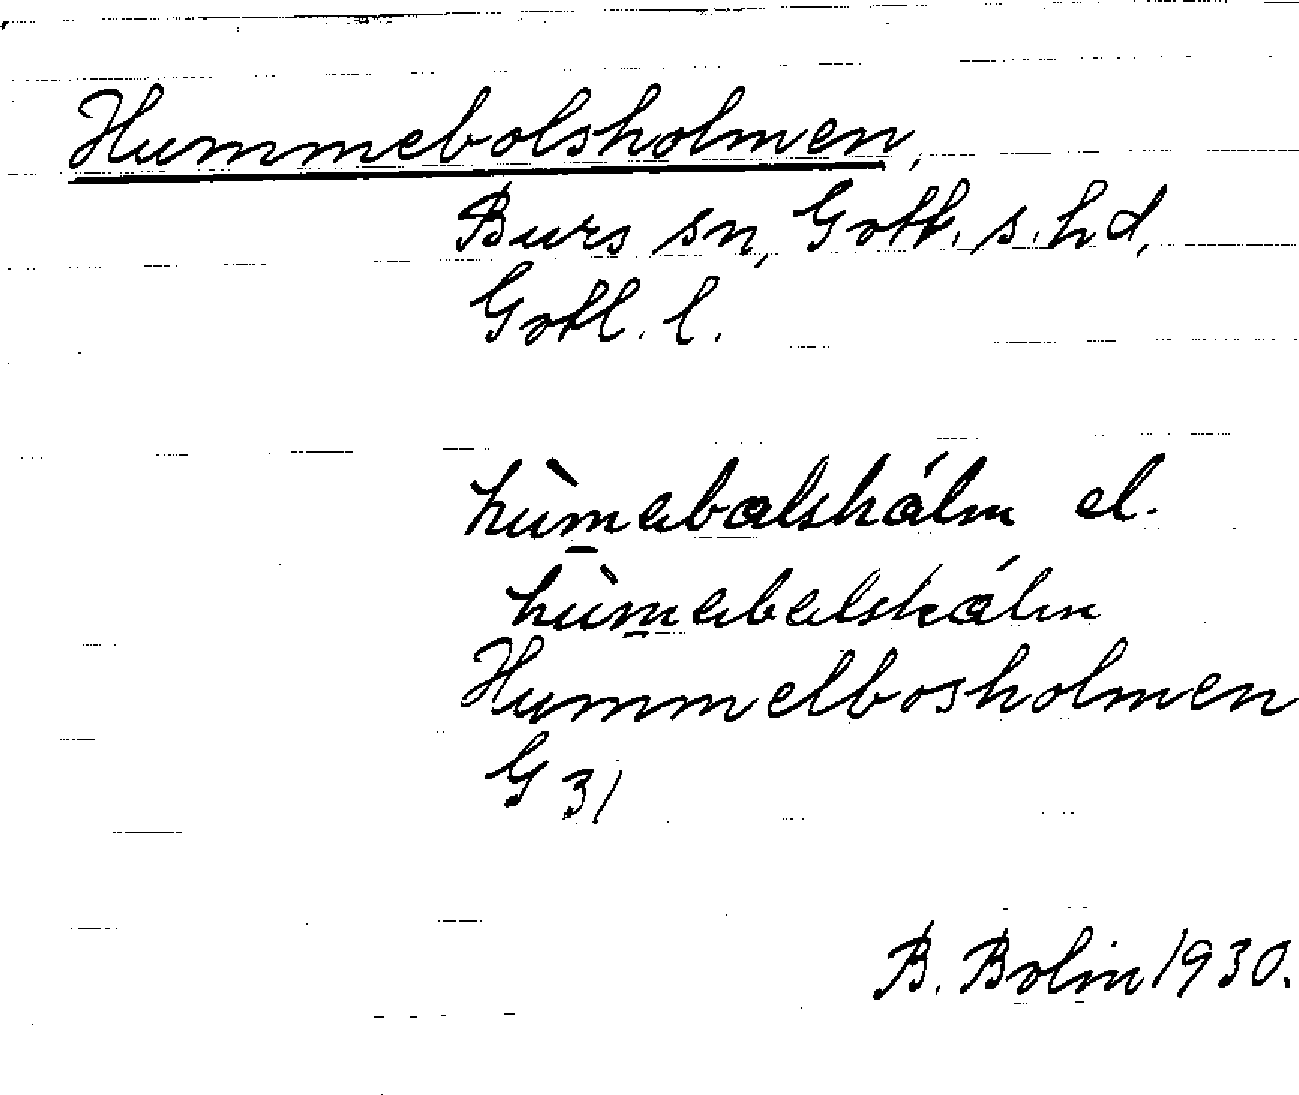 Hummebolsholmen,
Burs sn, Gotl. s. hd,
Gotl. l.
hùm̱ebalshálm el.
hùm̱ebelshálm
Hummelbosholmen
G 31
B. Bolin 1930.